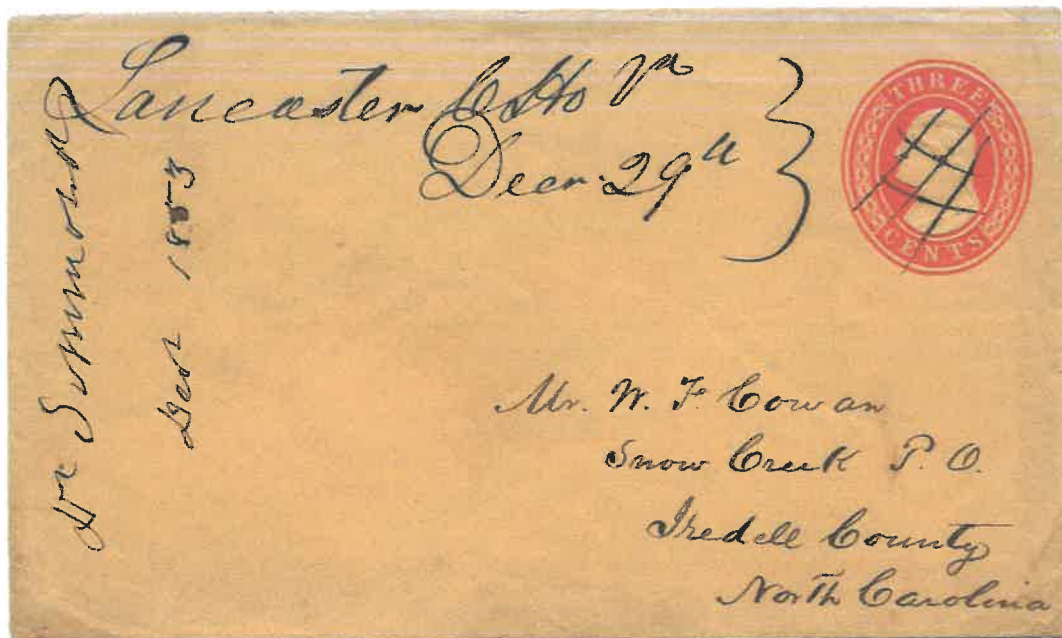 Lancaster C Ho Va
Decr. 29th
THREE
CENTS
Mr. W. F. Cowan
Snow Creek P. O.
Iredell County
North Carolina
Dr Simmonds
Decr 1853